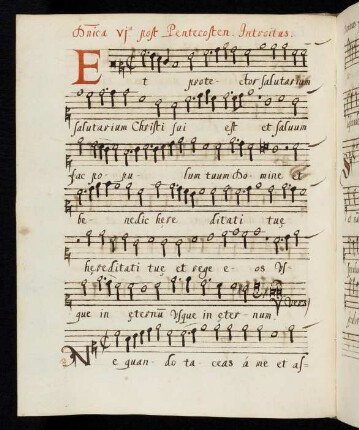 Dnica vjª post Pentecosten. Introitus.
E t prote- ctor salutarium
salutarium Christi sui est et saluum
fac po- pu- lum tuum Domine et
be- nedic here- ditati tuę
hęreditati tuę et rege e- os Vs-
que in ęternū Vsque in ęter- num
Ne quan- do ta- ceas á me et as-